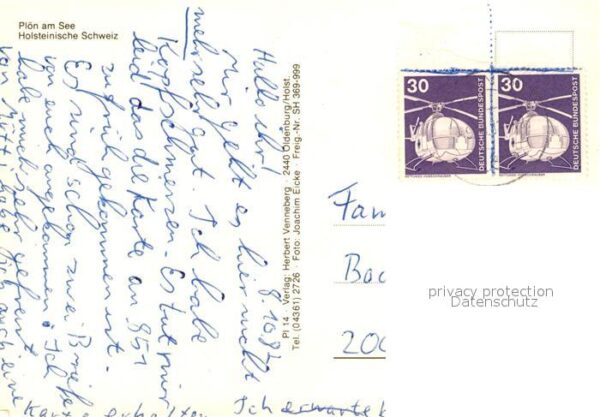 Plön am See
Holsteinische Schweiz
8.10.82
Hallo ihr!
Mir geht es hier nicht
mehr sehr gut. Ich habe
Kopfschmerzen. Es tut mir
leid, das die Karte an 851
zurück gekommen ist.
Es sind schon zwei Briefe
von euch angekommen. Ich
habe mich sehr gefreut.
von habe ich auch eine
Karte erhalten
Ich erwarte
Pl 14 · Verlag: Herbert Venneberg · 2440 Oldenburg/Holst.
Tel. (04361) 2726 · Foto: Joachim Eicke · Freig.-Nr. SH 369-999
30
DEUTSCHE BUNDESPOST
30
DEUTSCHE BUNDESPOST
Fam
Bac
200
privacy protection
Datenschutz